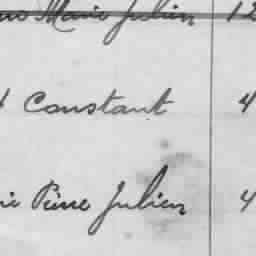 Marie Julien 12
Constant 4
Pierre Julien 4